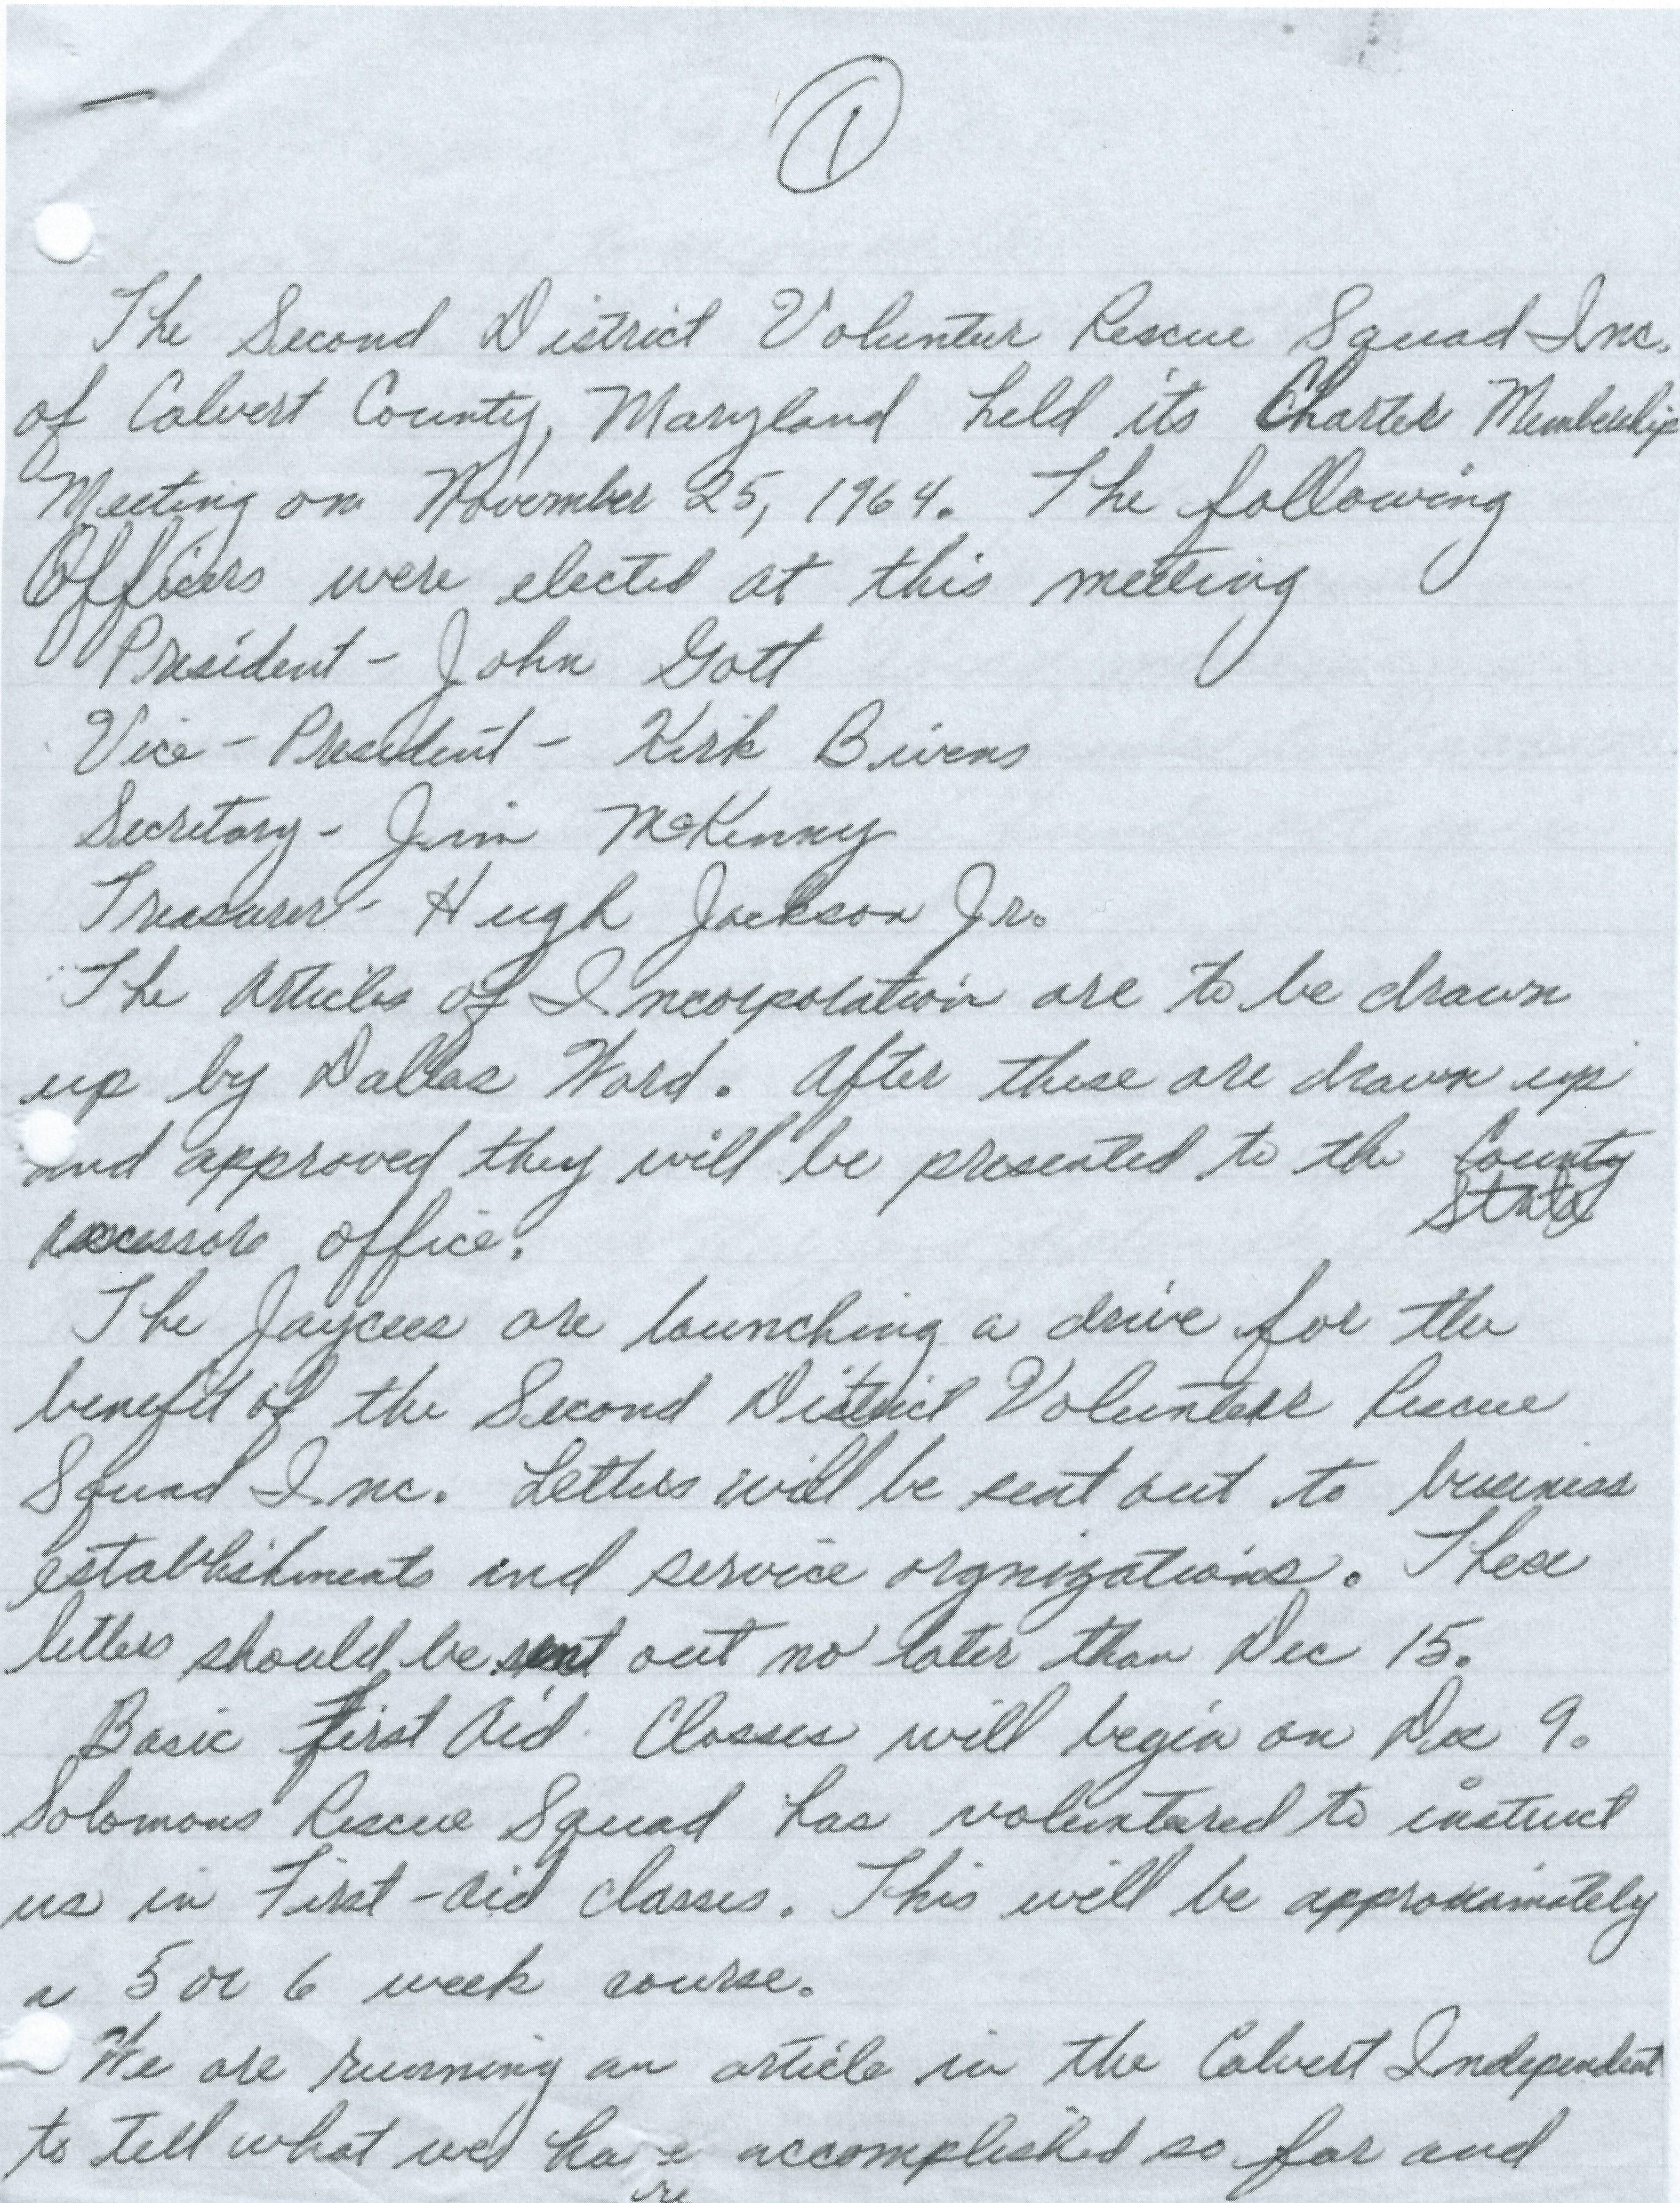 1
The Second District Volunteer Rescue Squad Inc.
of Calvert County, Maryland held its Charter Membership
Meeting on November 25, 1964. The following
Officers were elected at this meeting
President - John Gott
Vice - President - Kirk Bivens
Secretary - Jim McKenny
Treasurer - Hugh Jackson Jr.
The Articles of Incorporation are to be drawn
up by Dallas Ward. After these are drawn up
and approved they will be presented to the County
State
office.
The Jaycees are launching a drive for the
benefit of the Second District Volunteer Rescue
Squad Inc. Letters will be sent out to business
establishments and service orgnizations. These
letters should be sent out no later than Dec 15.
Basic First Aid Classes will begin on Dec 9.
Solomons Rescue Squad has voluntered to instruct
us in First-Aid classes. This will be approximately
a 5 or 6 week course.
We are running an article in the Calvert Independent
to tell what we have accomplished so far and
re